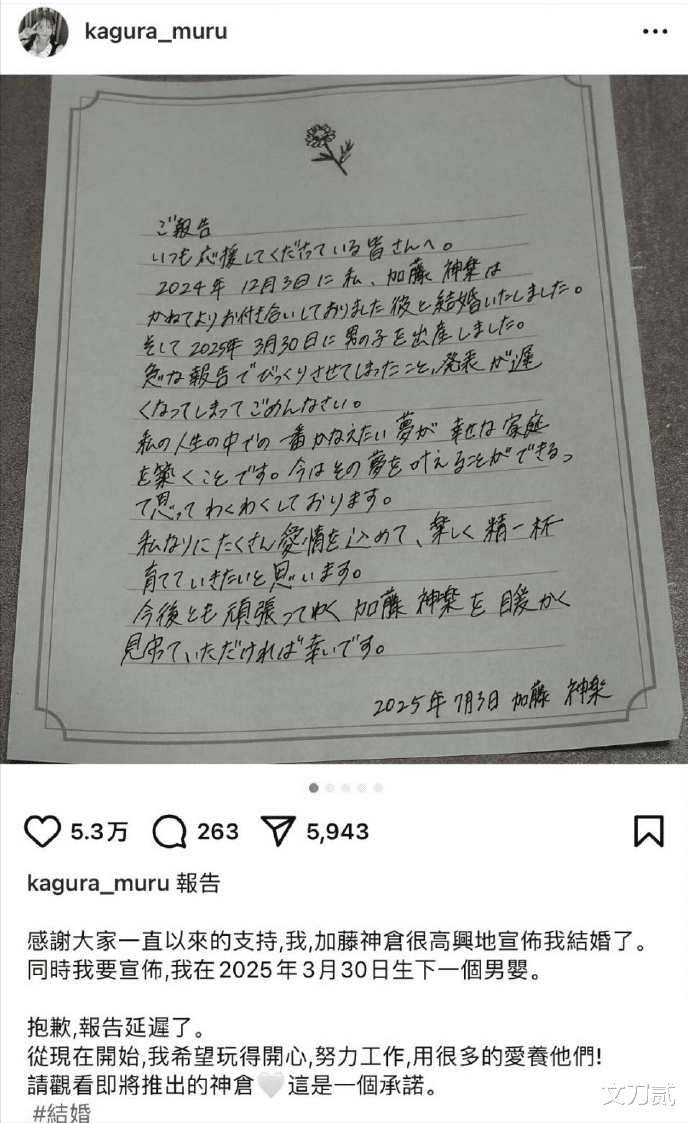 kagura_muru
ご報告
いつも応援してくださっている皆さんへ。
2024年 12月3日に私、加藤 神楽は
かねてよりお付き合いしておりました彼と結婚いたしました。
そして 2025年 3月30日に男の子を出産しました。
急な報告でびっくりさせてしまったこと、発表が遅
くなってしまってごめんなさい。
私の人生の中での一番かなえたい夢が 幸せな家庭
を築くことです。今はその夢を叶えることができるっ
て思ってわくわくしております。
私なりにたくさん愛情を込めて、楽しく精一杯
育てていきたいと思います。
今後とも頑張ってゆく 加藤 神楽を 暖かく
見守っていただければ幸いです。
2025年 7月3日 加藤 神楽
5.3万 263 5,943
kagura_muru 報告
感謝大家一直以來的支持,我,加藤神倉很高興地宣佈我結婚了。
同時我要宣佈,我在2025年3月30日生下一個男嬰。
抱歉,報告延遲了。
從現在開始,我希望玩得開心,努力工作,用很多的愛養他們!
請觀看即將推出的神倉🤍這是一個承諾。
#結婚
文刀贰